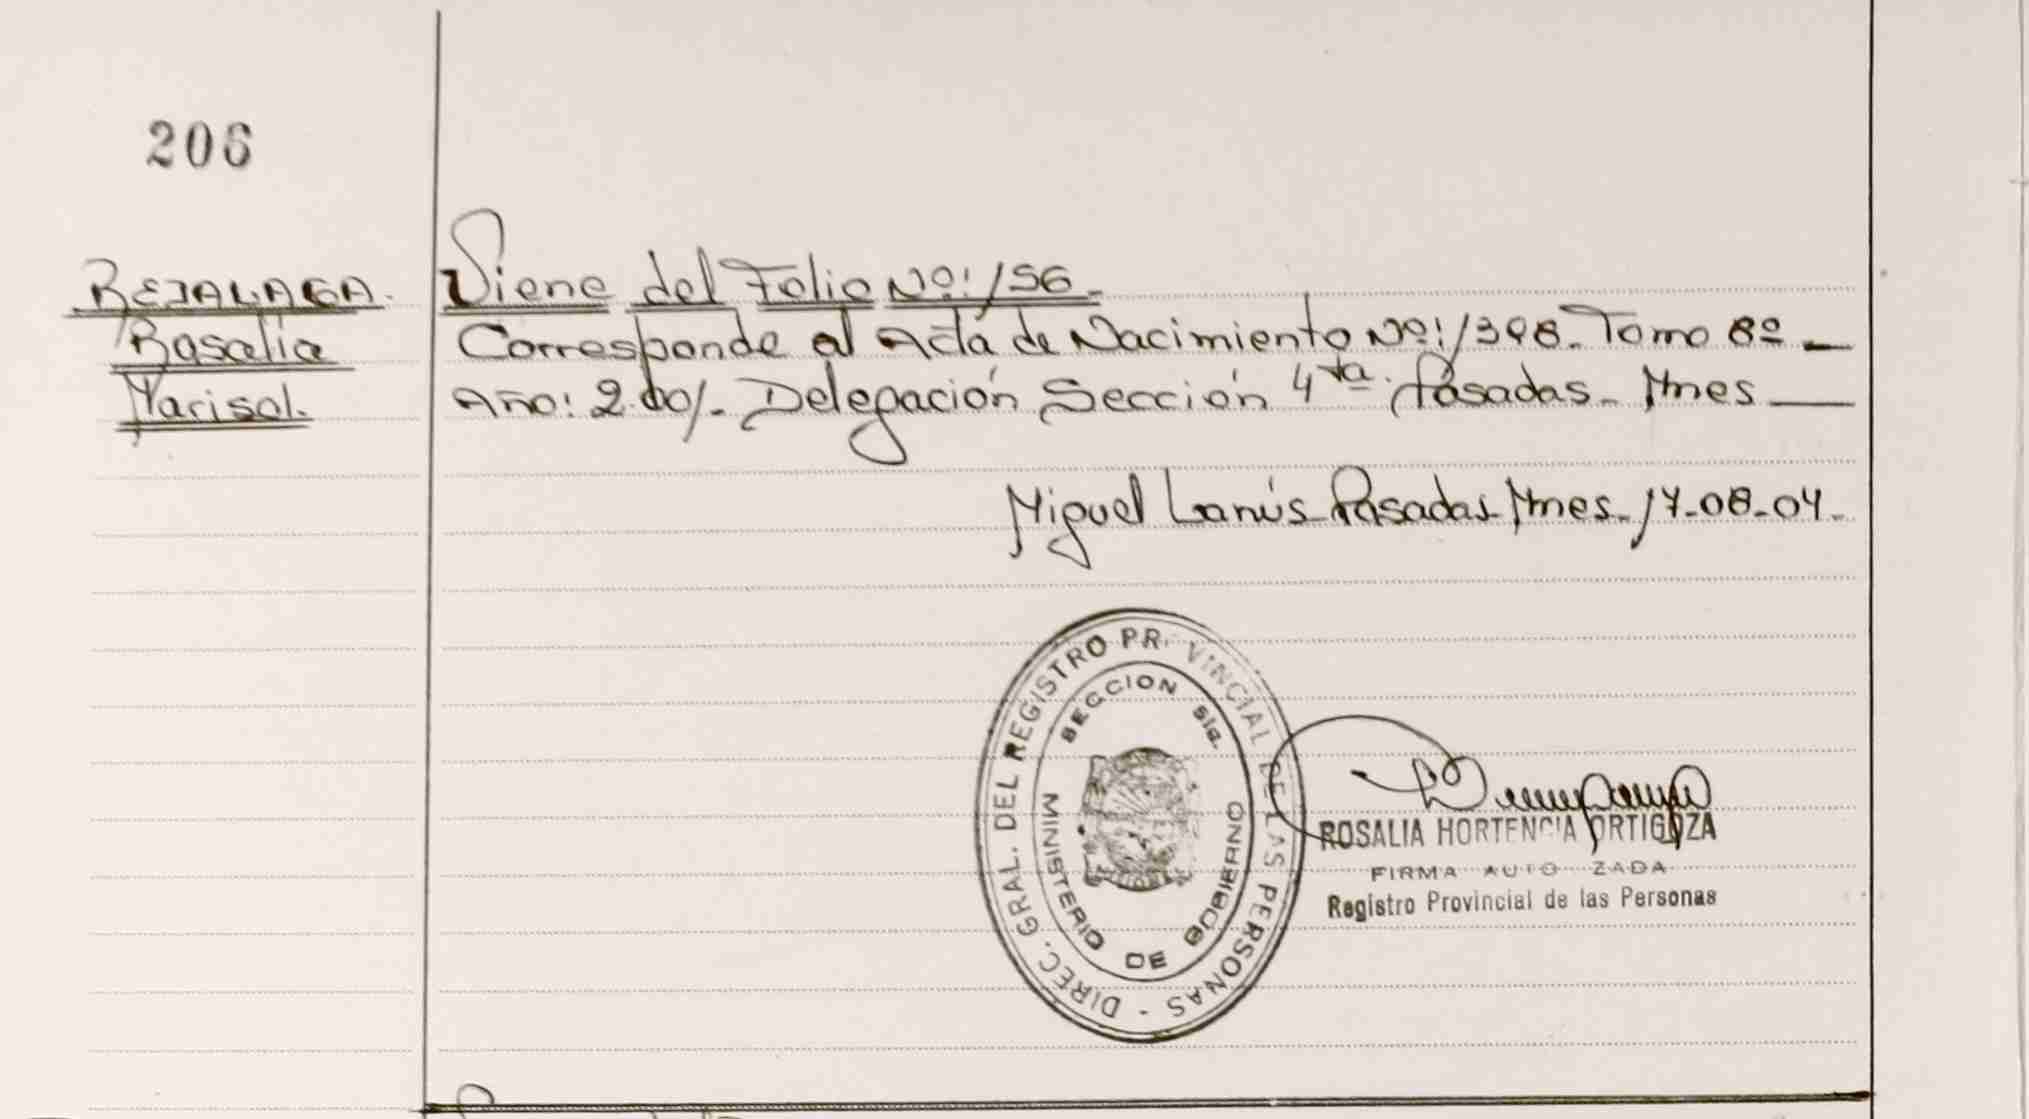 206
BEJALAGA.
Rosalia
Marisol.
Viene del Folio Nº: 156.
Corresponde al Acta de Nacimiento Nº: 1398. Tomo 8º
Año: 2.001. Delegación Sección 4ta. Posadas. Mnes
Miguel Lanús Posadas Mnes. 17-08-04.
DIREC. GRAL. DEL REGISTRO PR VINCIAL DE LAS PERSONAS -
SECCION Sig.
MINISTERIO DE GOBIERNO
ROSALIA HORTENCIA ORTIGOZA
FIRMA AUTO ZADA
Registro Provincial de las Personas